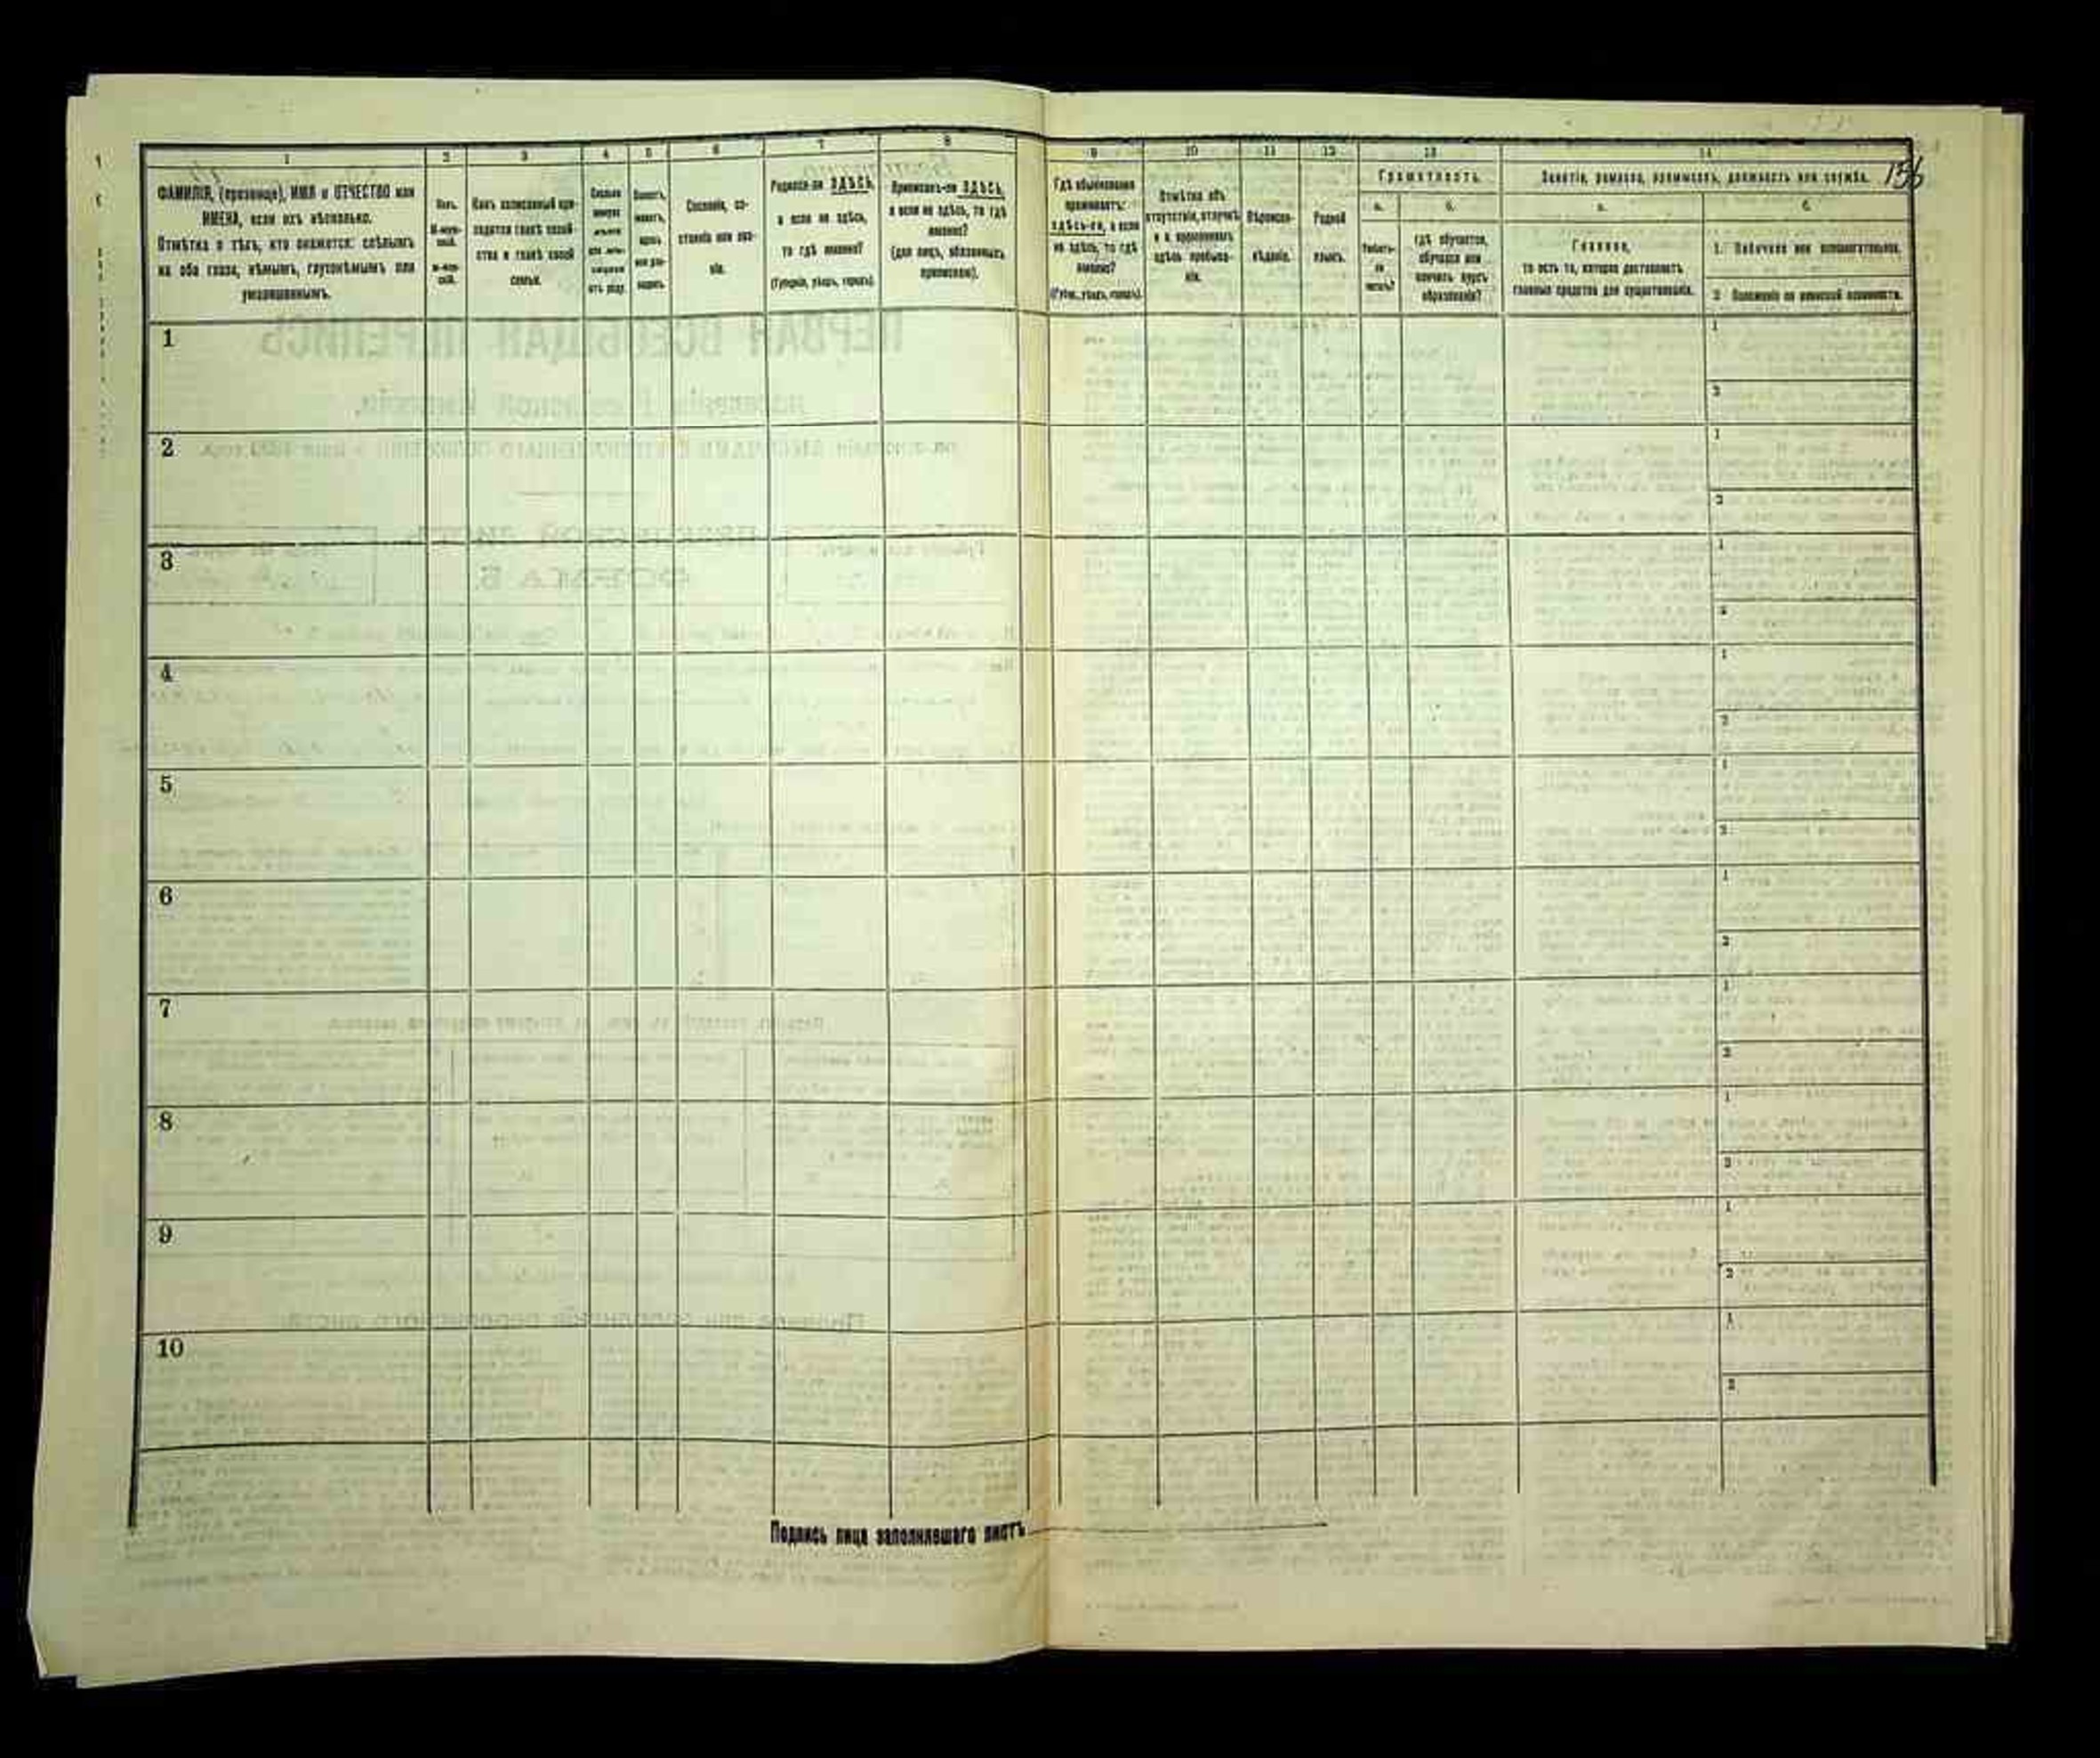 1
ФАМИЛІЯ, (прозвище), ИМЯ и ОТЧЕСТВО или
ИМЕНА, если ихъ нѣсколько.
Отмѣтка о тѣхъ, кто окажется: слѣпымъ
на оба глаза, нѣмымъ, глухонѣмымъ или
умалишеннымъ.
2
Полъ.
М-муж-
ской.
Ж-жен-
скій.
3
Какъ записанный при-
ходится главѣ хозяй-
ства и главѣ своей
семьи.
4
Сколько
минуло
лѣтъ
или мѣ-
сяцевъ
отъ роду.
5
Холостъ,
женатъ,
вдовъ
или раз-
веденъ.
6
Сословіе, со-
стояніе или зва-
ніе.
7
Родился-ли ЗДѢСЬ,
а если не здѣсь,
то гдѣ именно?
(Губернія, уѣздъ, городъ).
8
Приписанъ-ли ЗДѢСЬ,
а если не здѣсь, то гдѣ
именно?
(для лицъ, обязанныхъ
припискою).
9
Гдѣ обыкновенно
проживаетъ:
здѣсь-ли, а если
не здѣсь, то гдѣ
именно?
(Губерн., уѣздъ, городъ).
10
Отмѣтка объ
отсутствіи, отлучкѣ
и о временномъ
здѣсь пребыва-
ніи.
11
Вѣроиспо-
вѣданіе.
12
Родной
языкъ.
13
Грамотность.
а.
Умѣетъ-
ли
читать?
б.
гдѣ обучается,
обучался или
кончилъ курсъ
образованія?
14
Занятіе, ремесло, промыселъ, должность или служба.
156
а.
Главное,
то есть то, которое доставляетъ
главныя средства для существованія.
б.
1. Побочное или вспомогательное.
2. Положеніе по воинской повинности.
1
1
2
2
1
2
3
1
2
4
1
2
5
1
2
6
1
2
7
1
2
8
1
2
9
1
2
10
1
2
Подпись лица заполнявшаго листъ